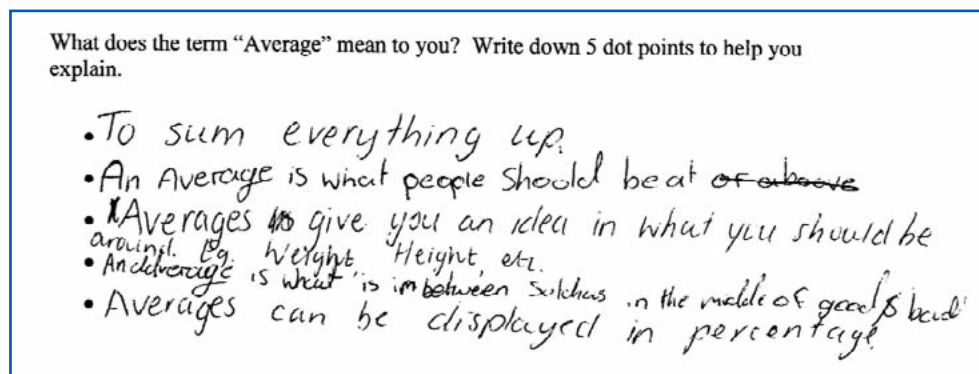 What does the term “Average” mean to you? Write down 5 dot points to help you
explain.
• To sum everything up.
• An Average is what people should be at or above
• Averages give you an idea in what you should be
around. Eg. Weight, Height, etc.
• An average is what is in between Sutchas in the middle of good & bad
• Averages can be displayed in percentage